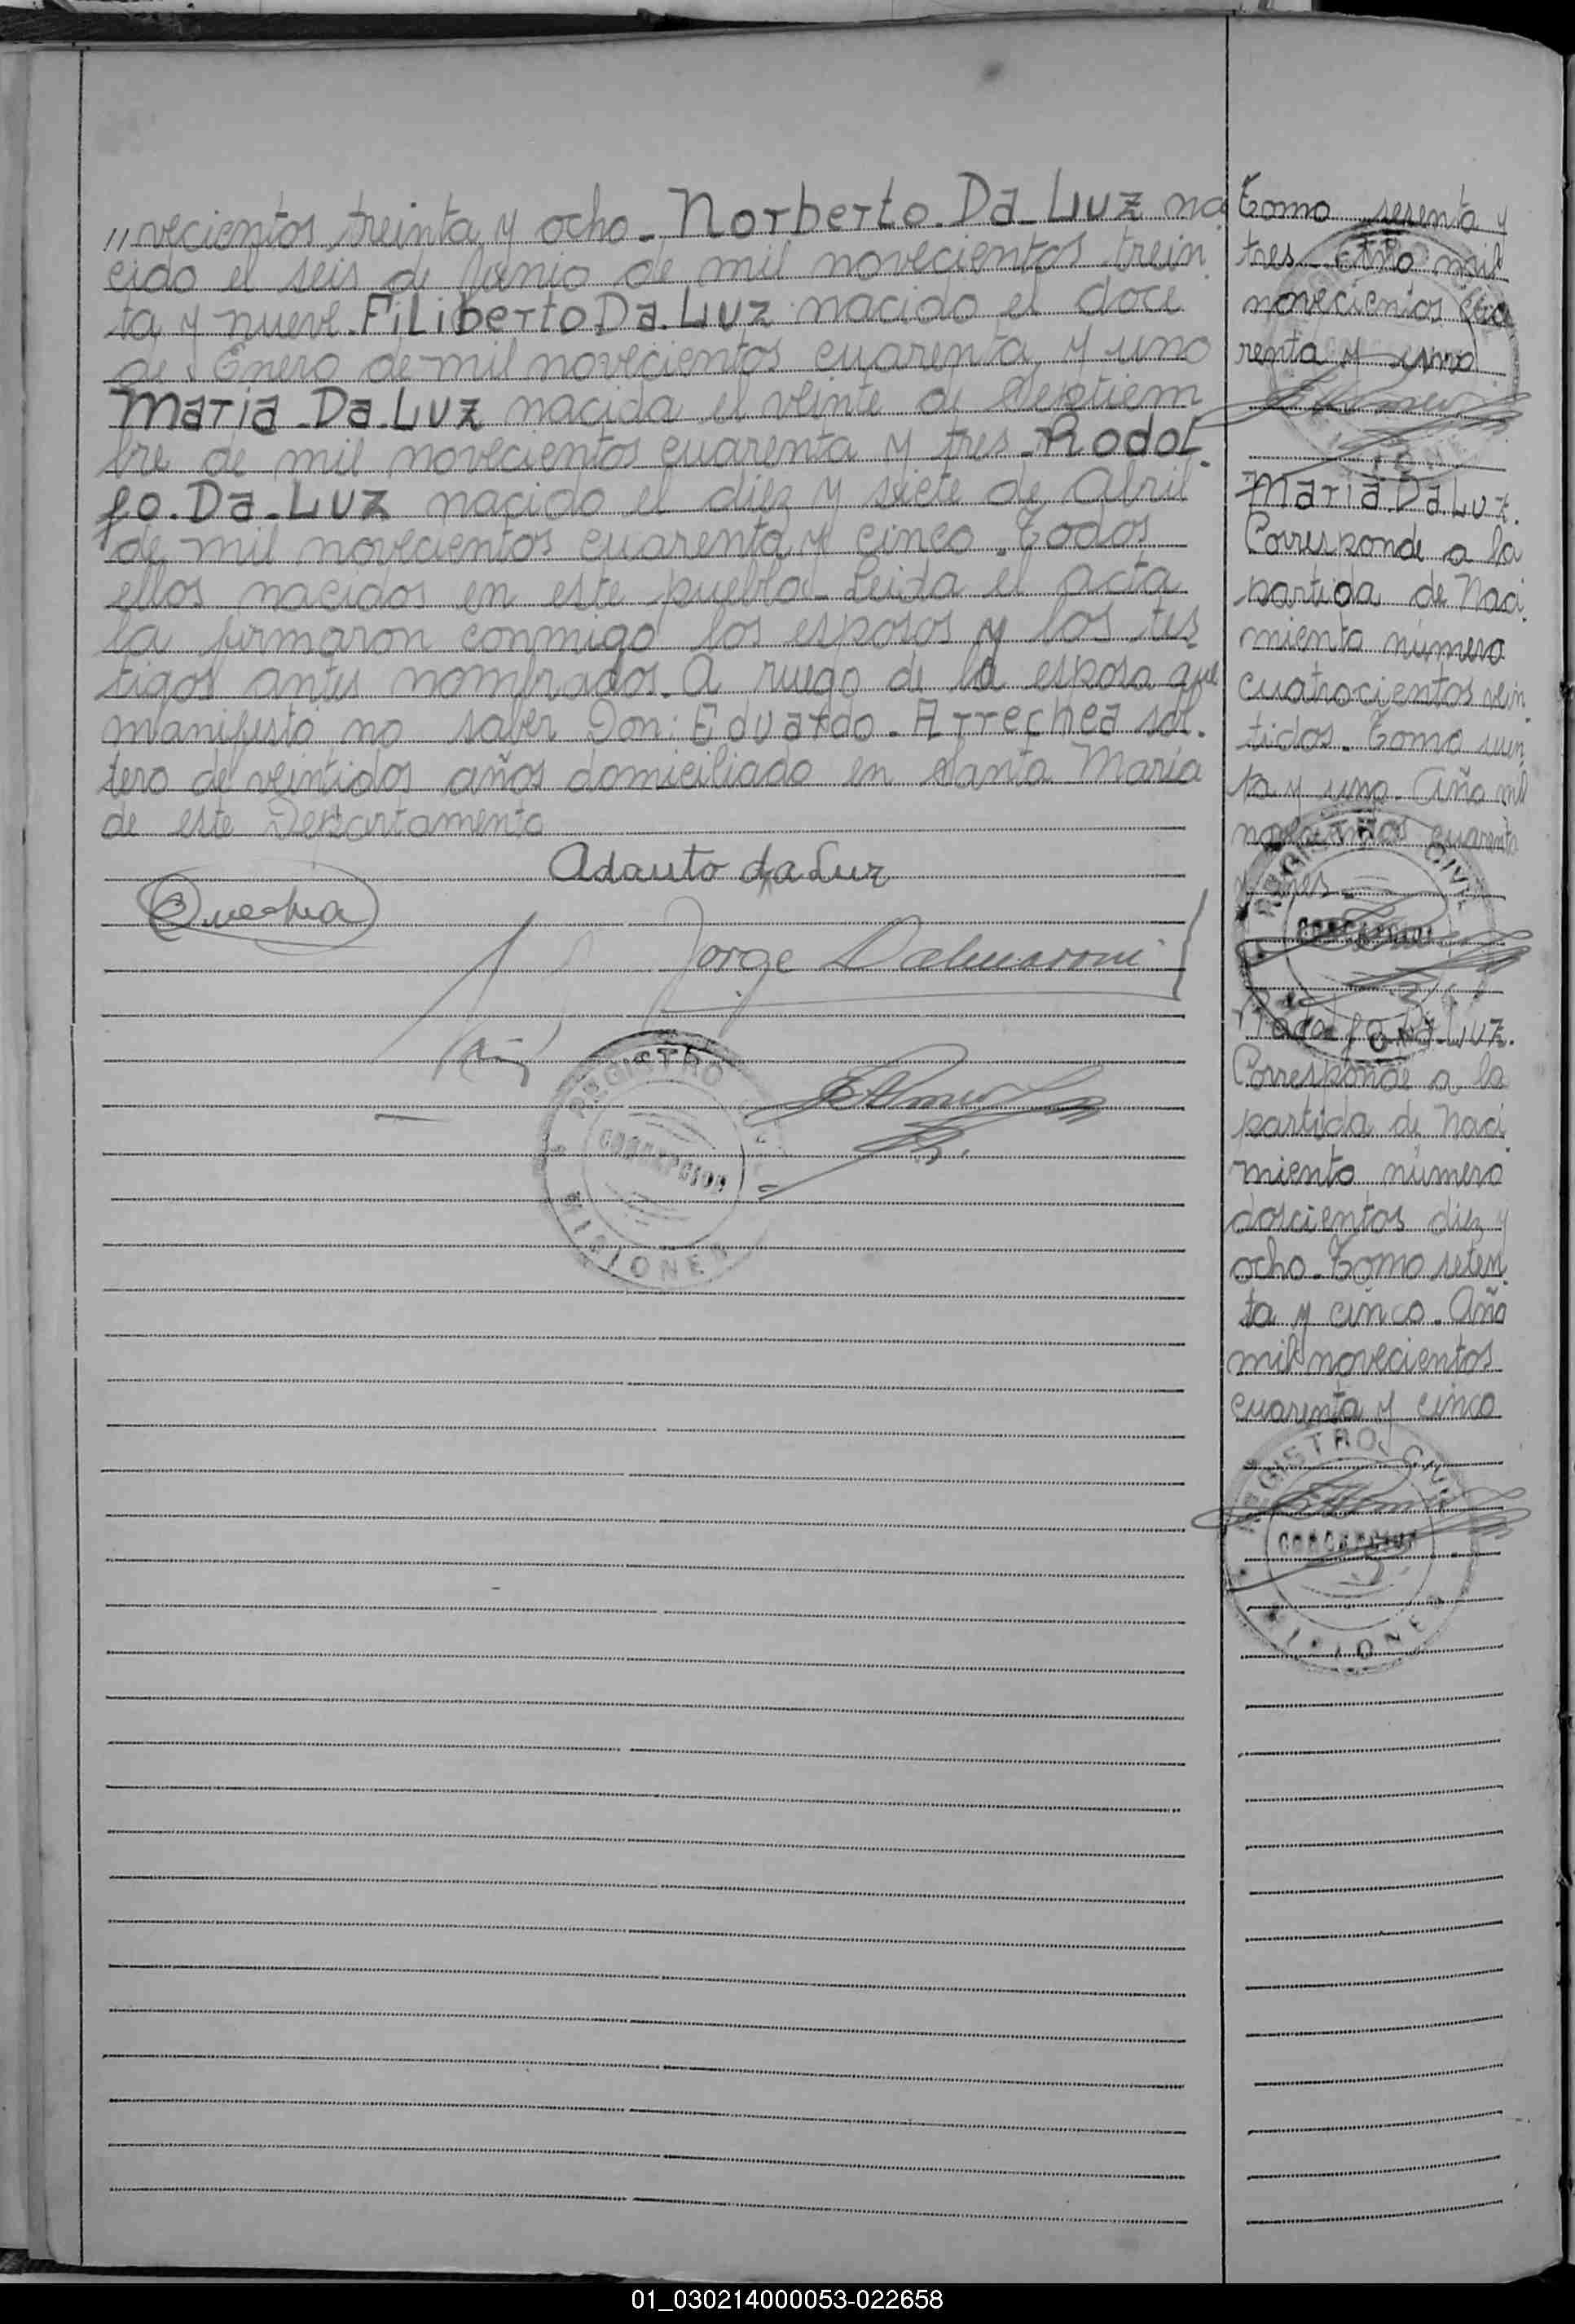 "vecientos treinta y ocho - Norberto. Da-Luz na
cido el seis de Junio de mil novecientos trein
ta y nueve. Filiberto Da. Luz nacido el doce
de Enero de mil novecientos cuarenta y uno
Maria - Da. Luz nacida el veinte de Septiem
bre de mil novecientos cuarenta y tres - Rodol
fo. Da-Luz nacido el diez y siete de Abril
de mil novecientos cuarenta y cinco. Todos
ellos nacidos en este pueblo - Leida el acta
la firmaron conmigo los esposos y los tes
tigos antes nombrados. A ruego de la esposa que
manifesto no saber Don: Eduardo - Arrechea sol.
tero de veintidos años domiciliado en Santa Maria
de este Departamento
Adauto da Luz
Jorge Dalmaroni
REGISTRO
CONCEPCION
MISIONES
Tomo sesenta y
tres - Año mil
novecientos cua
renta y uno
Maria. Da. Luz.
Corresponde a la
partida de Naci
miento número
cuatrocientos vein
tidos. Tomo
ta y uno. Año mil
novecientos cuarenta
y tres -
REGISTRO CIVIL
CONCEPCION
Rodolfo Da-Luz.
Corresponde a la
partida de Naci
miento número
doscientos diez y
ocho - Tomo seten
ta y cinco. Año
mil novecientos
cuarenta y cinco
REGISTRO CIVIL
CONCEPCION
MISIONES
01_030214000053-022658